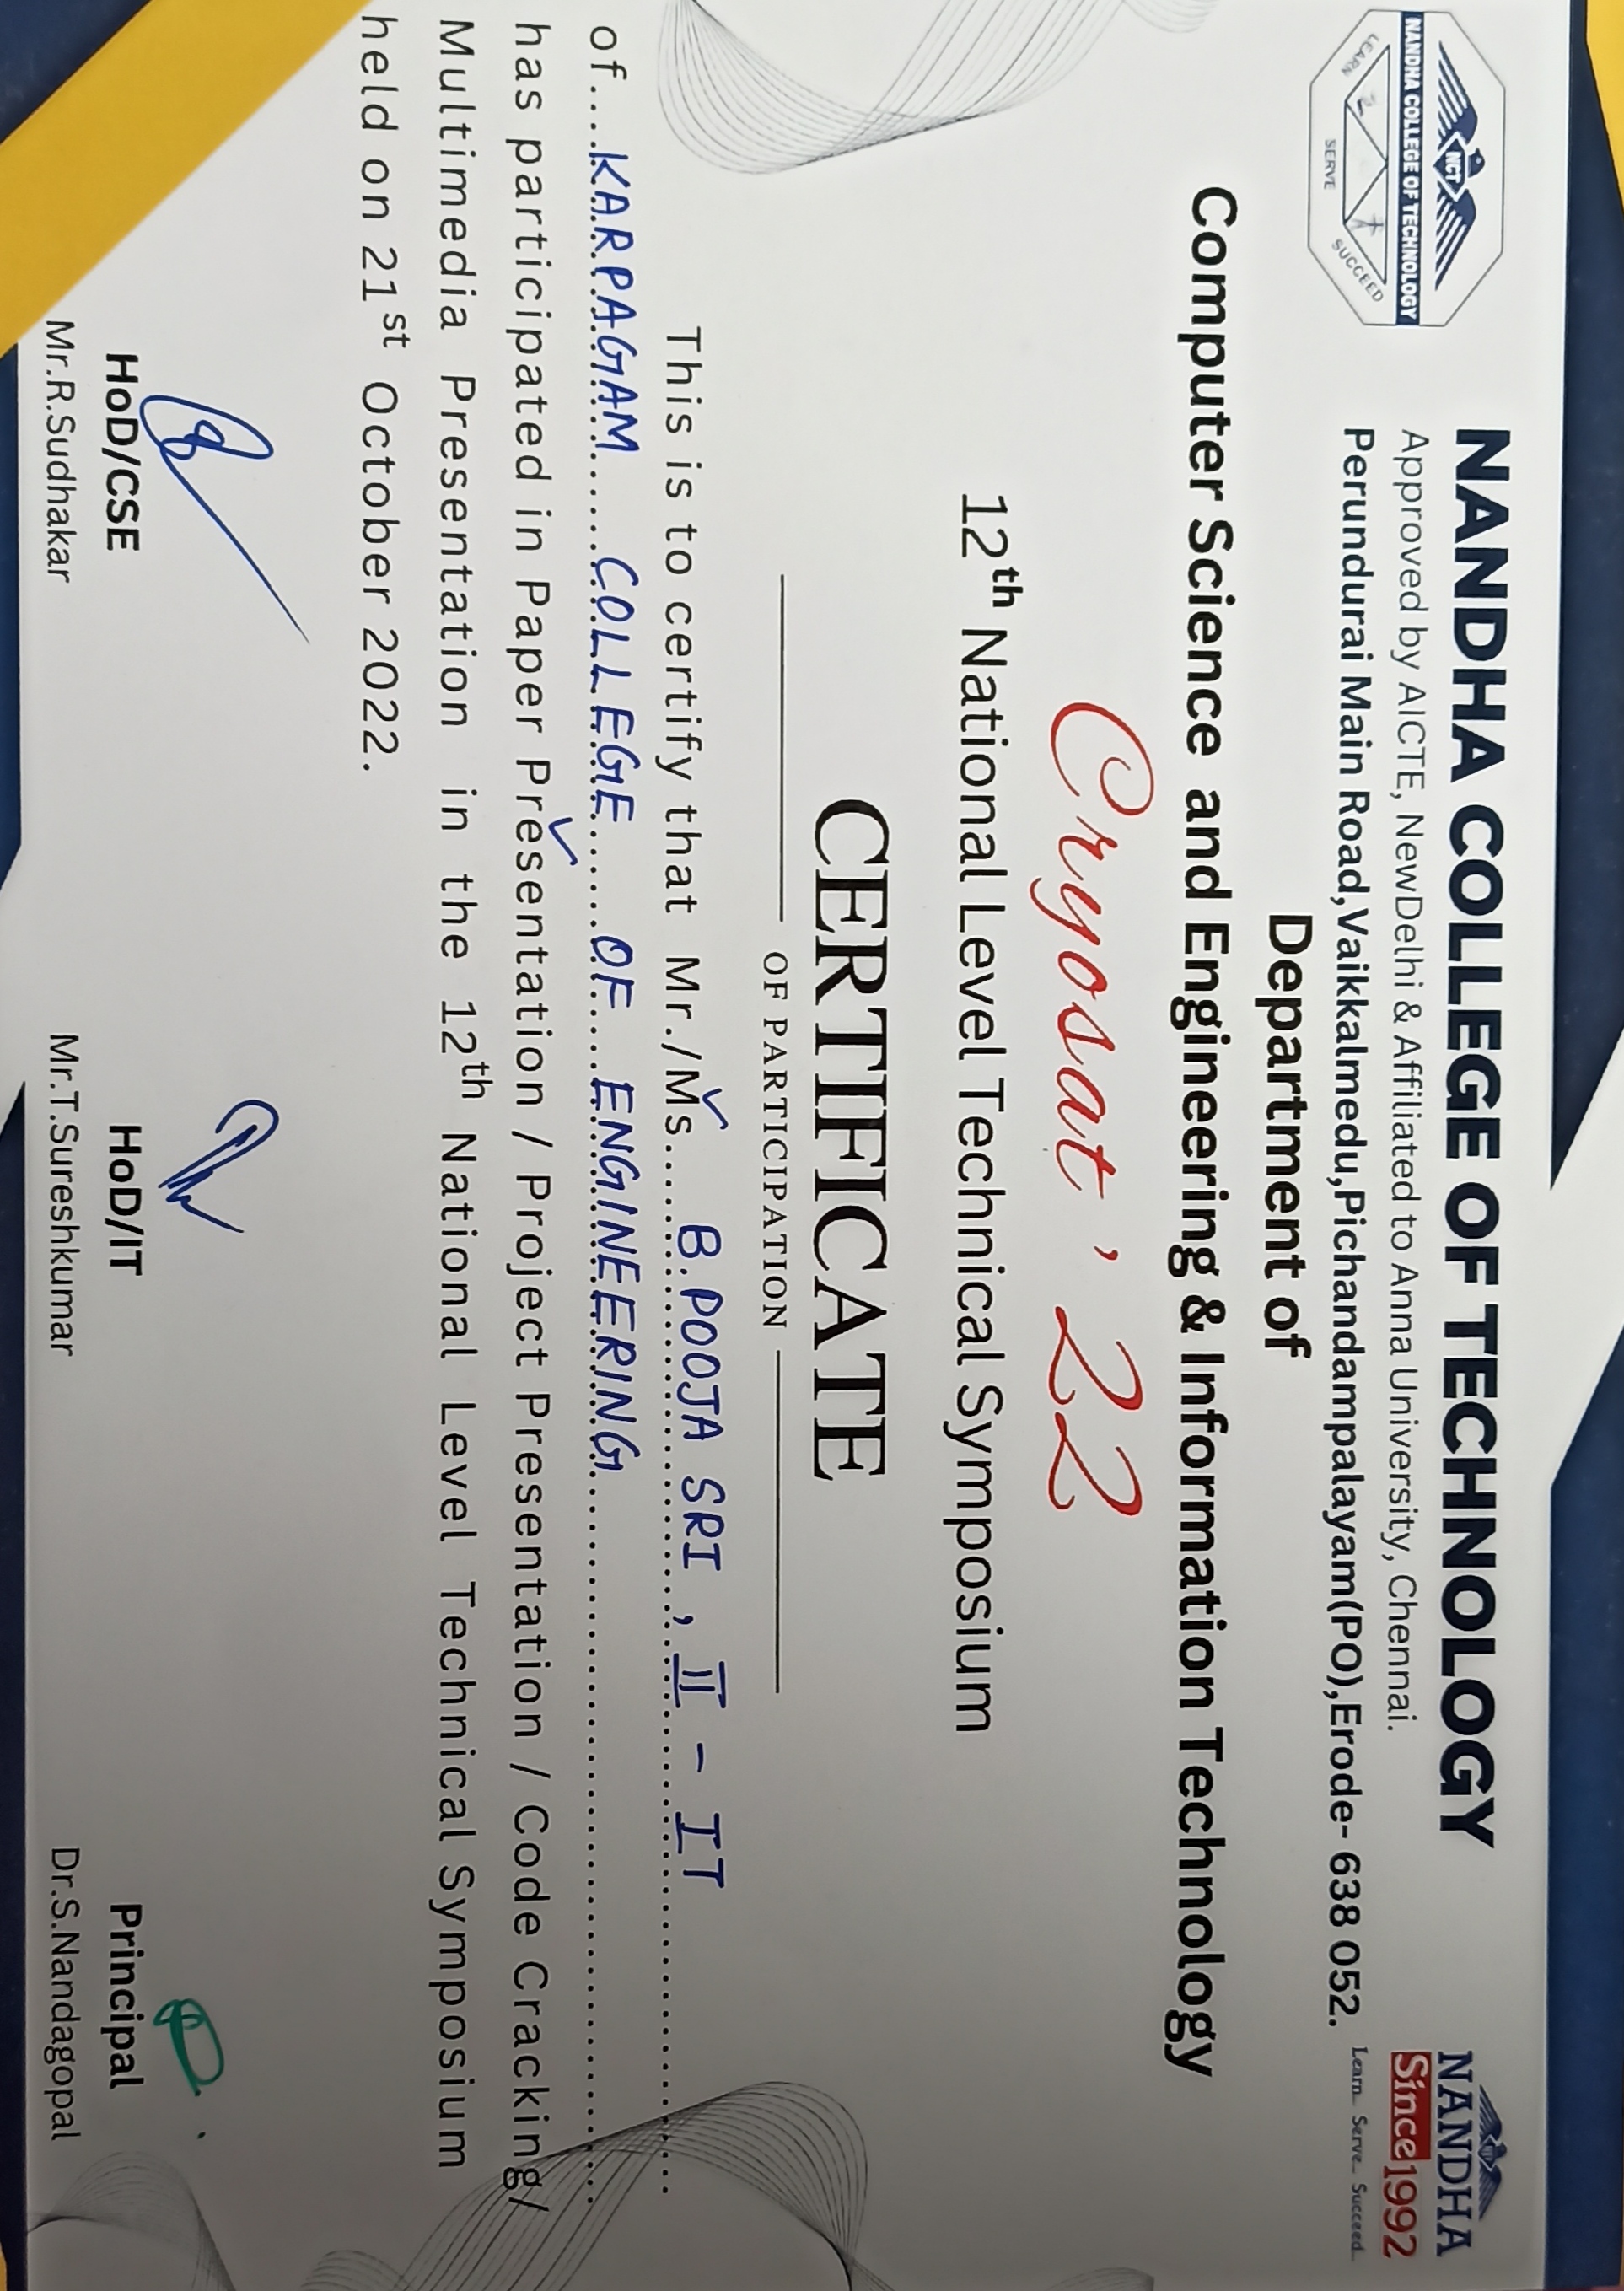 NANDHA COLLEGE OF TECHNOLOGY
LEARN
SERVE
SUCCEED
NCT
NANDHA COLLEGE OF TECHNOLOGY
Approved by AICTE, NewDelhi & Affiliated to Anna University, Chennai.
Perundurai Main Road,Vaikkalmedu,Pichandampalayam(PO),Erode- 638 052.
NANDHA
Since1992
Learn... Serve... Succeed...
Department of
Computer Science and Engineering & Information Technology
Cryosat ' 22
12th National Level Technical Symposium
CERTIFICATE
OF PARTICIPATION
This is to certify that Mr./Ms.... B.POOJA SRI , II - IT
of....KARPAGAM COLLEGE OF ENGINEERING
has participated in Paper Presentation / Project Presentation / Code Cracking/
Multimedia Presentation in the 12th National Level Technical Symposium
held on 21st October 2022.
HoD/CSE HoD/IT Principal
Mr.R.Sudhakar Mr.T.Sureshkumar Dr.S.Nandagopal